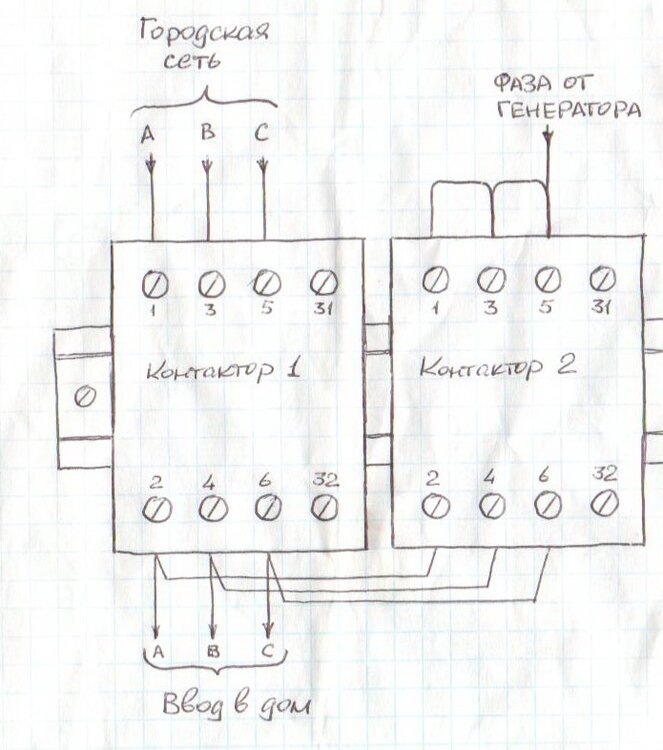 Городская
сеть
ФАЗА ОТ
ГЕНЕРАТОРА
А В С
1 3 5 31
1 3 5 31
Контактор 1
Контактор 2
2 4 6 32
2 4 6 32
А В С
Ввод в дом